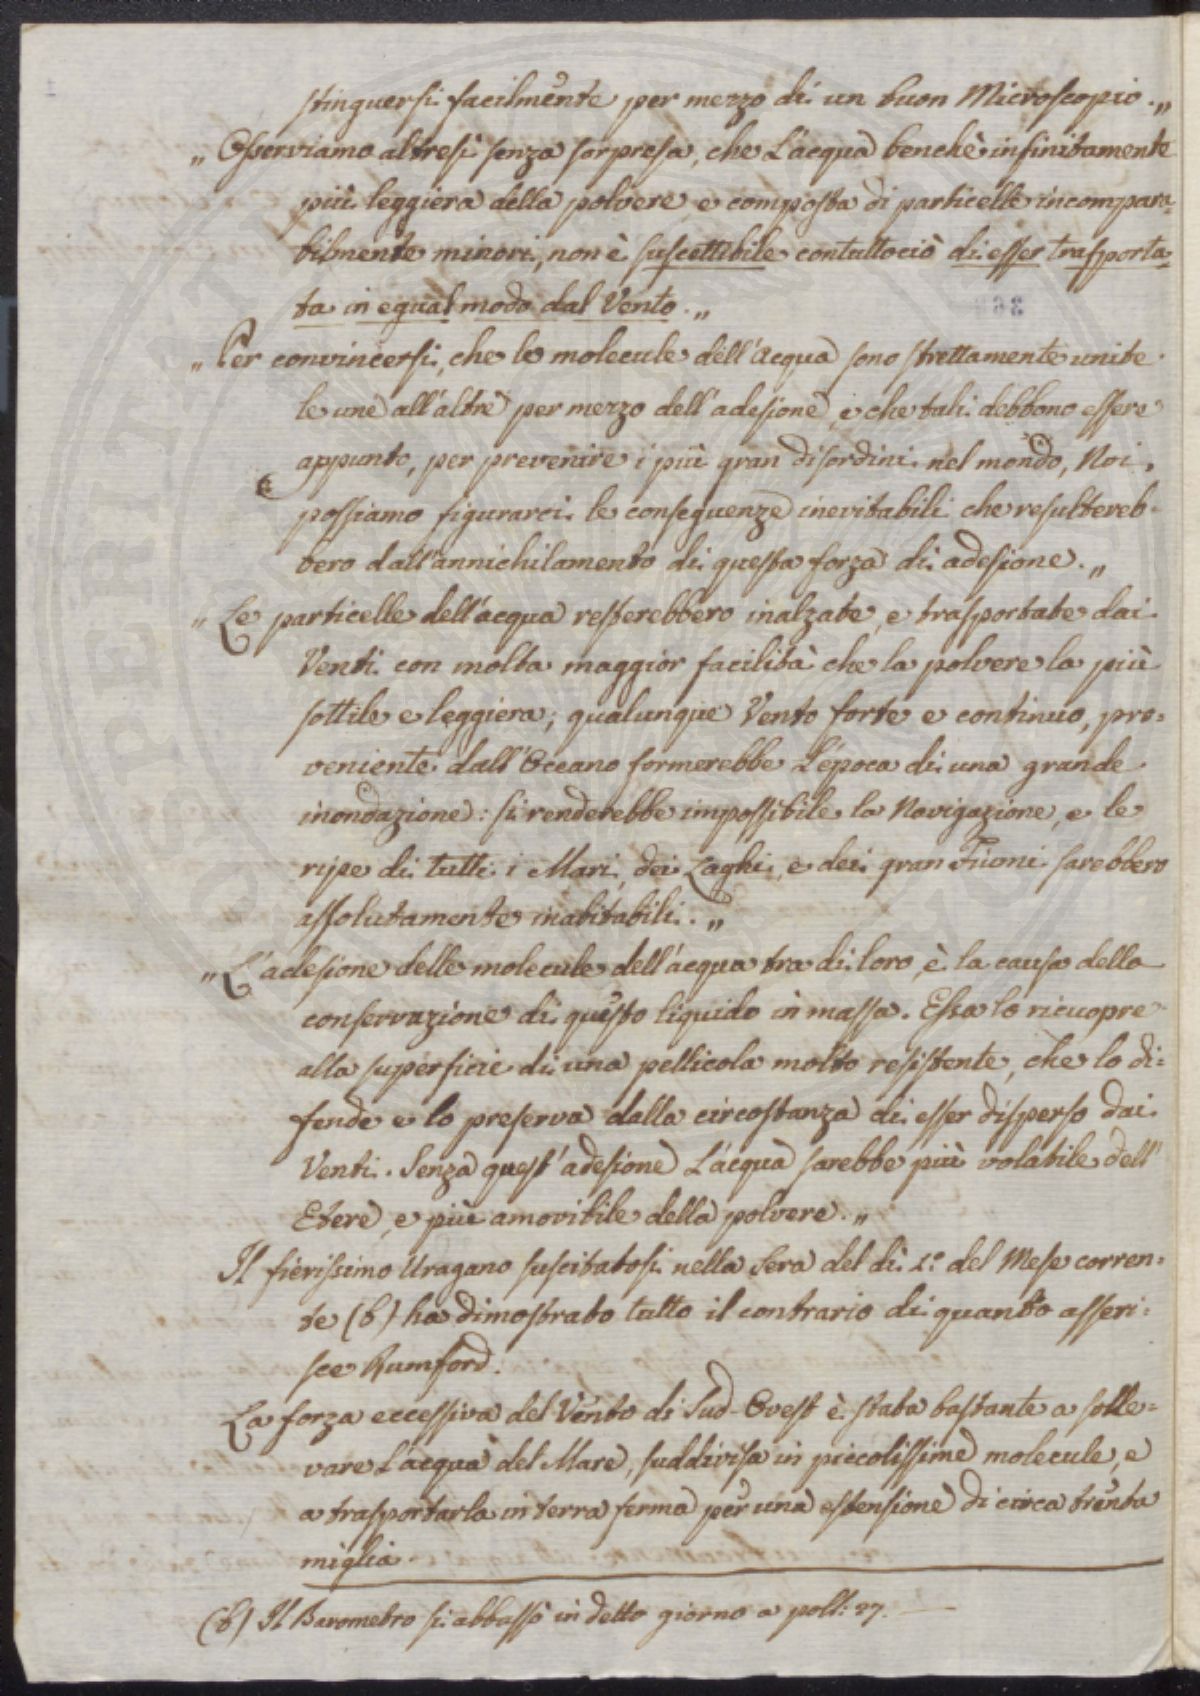 stinguersi facilmente per mezzo di un buon Microscopio.„
„ Osserviamo altresì senza sorpresa, che L'acqua benchè infinitamente
più leggiera della polvere e composta di particelle incompara-
bilmente minori, non è suscettibile contuttociò di esser trasporta-
ta in egual modo dal Vento.„
„ Per convincersi, che le molecule dell'Acqua sono strettamente unite
le une all'altre per mezzo dell'adesione, e che tali debbono essere
appunto, per prevenire i più gran disordini nel mondo, Noi
possiamo figurarci le conseguenze inevitabili che resultereb-
bero dall'annichilamento di questa forza di adesione.„
„ Le particelle dell'acqua resterebbero inalzate, e trasportate dai
Venti con molta maggior facilità che la polvere la più
sottile e leggiera; qualunque Vento forte e continuo, pro-
veniente dall'Oceano formerebbe L'época di una grande
inondazione: si renderebbe impossibile la Navigazione, e le
ripe di tutti i Mari, dei Laghi, e dei gran Fiumi sarebbero
assolutamente inabitabili.„
„ L'adesione delle molecule dell'acqua tra di loro, è la causa della
conservazione di questo liquido in massa. Essa lo ricuopre
alla superficie di una pellicola molto resistente, che lo di-
fende e lo preserva dalla circostanza di esser disperso dai
Venti. Senza quest'adesione L'acqua sarebbe più volatile dell'
Etere, e più amovibile della polvere.„
Il fierissimo Uragano suscitatosi nella Sera del dì 1.º del Mese corren-
te (b) ha dimostrato tutto il contrario di quanto asseri-
sce Rumford.
La forza eccessiva del Vento di Sud-Ovest è stata bastante a solle-
vare L'acqua del Mare, suddivisa in piccolissime molecule, e
a trasportarla in terra ferma per una estensione di circa trenta
miglia.
(b) Il Barometro si abbassò in detto giorno a poll: 27.